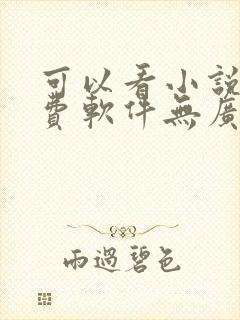 可以看小說
費軟件無廣
雨過碧色